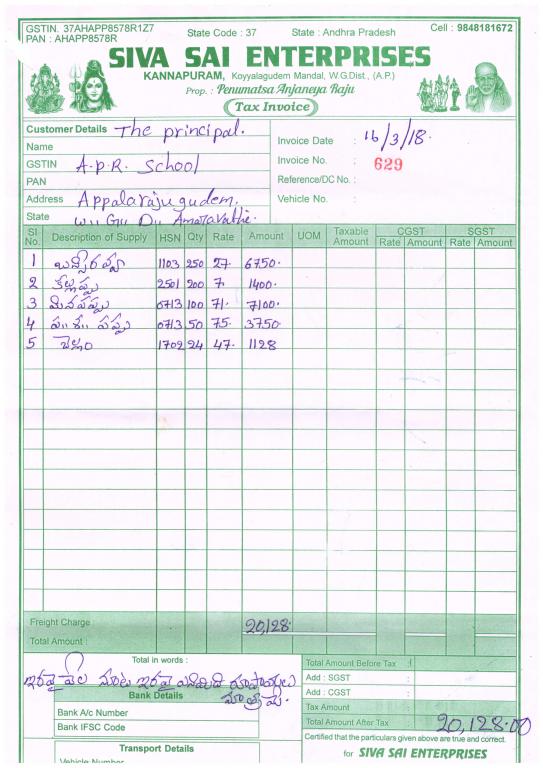 GSTIN. 37AHAPP8578R1Z7
PAN : AHAPP8578R
State Code : 37
State : Andhra Pradesh
Cell : 9848181672
SIVA SAI ENTERPRISES
KANNAPURAM, Koyyalagudem Mandal, W.G.Dist., (A.P.)
Prop. : Penumatsa Anjaneya Raju
Tax Invoice
Customer Details The principal.
Name
GSTIN A.P.R. School
PAN
Address Appalarajugudem.
State W.. G.. D.. Amaravathi.
Invoice Date : 16/3/18.
Invoice No. : 629
Reference/DC No. :
Vehicle No. :
Sl No. Description of Supply HSN Qty Rate Amount UOM Taxable Amount CGST Rate Amount SGST Rate Amount
1 1103 250 27. 6750.
2 2501 200 7. 1400.
3 మినపప్పు 0713 100 71. 7100.
4 పప్పు 0713 50 75. 3750.
5 బెల్లం 1702 24 47. 1128
Freight Charge
20,128.
Total Amount :
Total in words :
ఇరవై వేల నూట ఇరవై ఎనిమిది రూపాయలు
మాత్రమే.
Bank Details
Bank A/c Number
Bank IFSC Code
Transport Details
Vehicle Number
Total Amount Before Tax :
Add : SGST :
Add : CGST :
Tax Amount :
Total Amount After Tax : 20,128.00
Certified that the particulars given above are true and correct.
for SIVA SAI ENTERPRISES